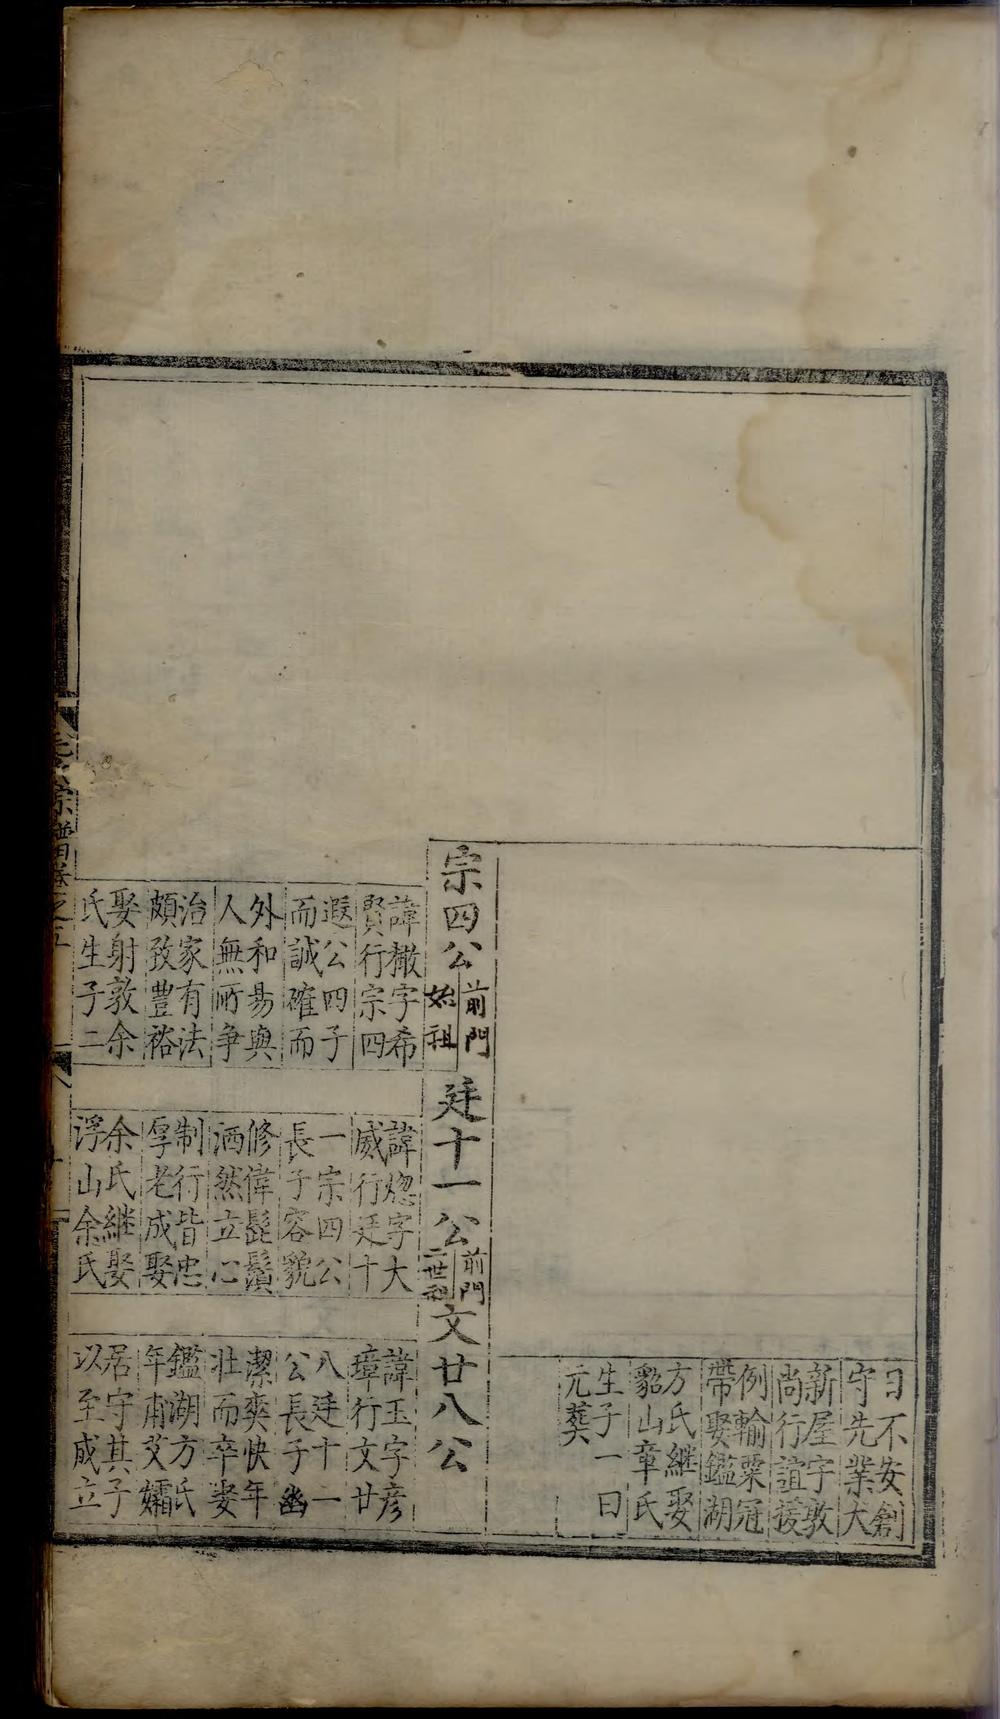 日不妄創
守先業大
新屋字敦
尚行誼援
例輸粟冠
帶娶鑑湖
方氏継娶
貎山章氏
生子一曰
元葵
宗四公
前門
始祖
諱檄字希
賢行宗四
遐公四子
而誠確而
外和易與
人無所争
治家有法
頗致豐裕
娶射敦余
氏生子二
廷十一公
前門
二世祖
諱熜字大
威行廷十
一宗四公
長子容貌
修偉髭鬚
洒然立心
制行皆忠
厚老成娶
余氏継娶
浮山余氏
文廿八公
諱玉字彦
璋行文廿
八廷十一
公長子
潔爽快年
壮而卒娄
鑑湖方氏
年甫艾孀
居守其子
以至成立
宗譜卷之五